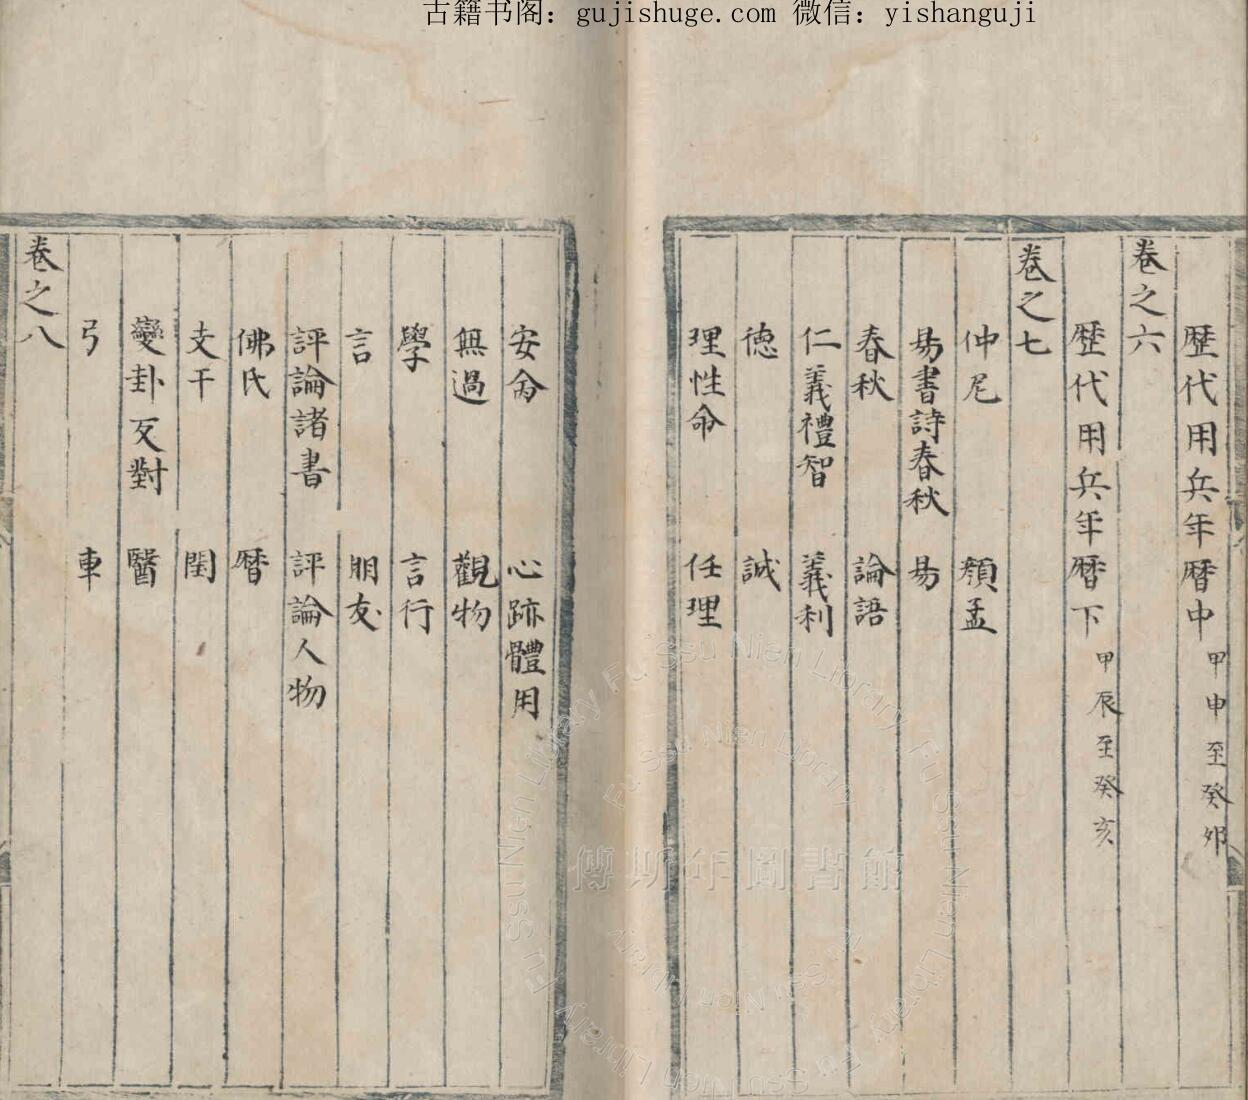 古籍书阁：gujishuge.com 微信：yishanguji
歷代用兵年曆中 甲申至癸卯
卷之六
歷代用兵年曆下 甲辰至癸亥
卷之七
仲尼 顏孟
易書詩春秋 易
春秋 論語
仁義禮智 義利
德 誠
理性命 任理
安分 心跡體用
無過 觀物
學 言行
言 朋友
評論諸書 評論人物
佛氏 曆
支干 閏
變卦反對 醫
弓 車
卷之八
傅斯年圖書館
Fu Ssu Nien Library